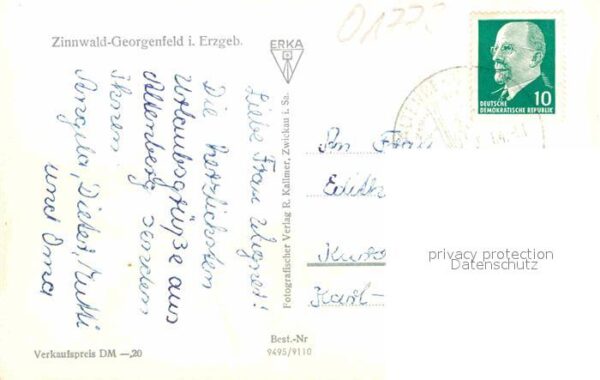 Zinnwald-Georgenfeld i. Erzgeb.
ERKA
01775
DEUTSCHE
DEMOKRATISCHE REPUBLIK
10
Liebe Frau Wagner!
Die herzlichsten
Urlaubsgrüße aus
Altenberg senden
Ihnen
Angela, Dieter, Mutti
und Oma
Fotografischer Verlag R. Kallmer, Zwickau i. Sa.
Edith
Karl-
privacy protection
Datenschutz
Best.-Nr
9495/9110
Verkaufspreis DM —,20